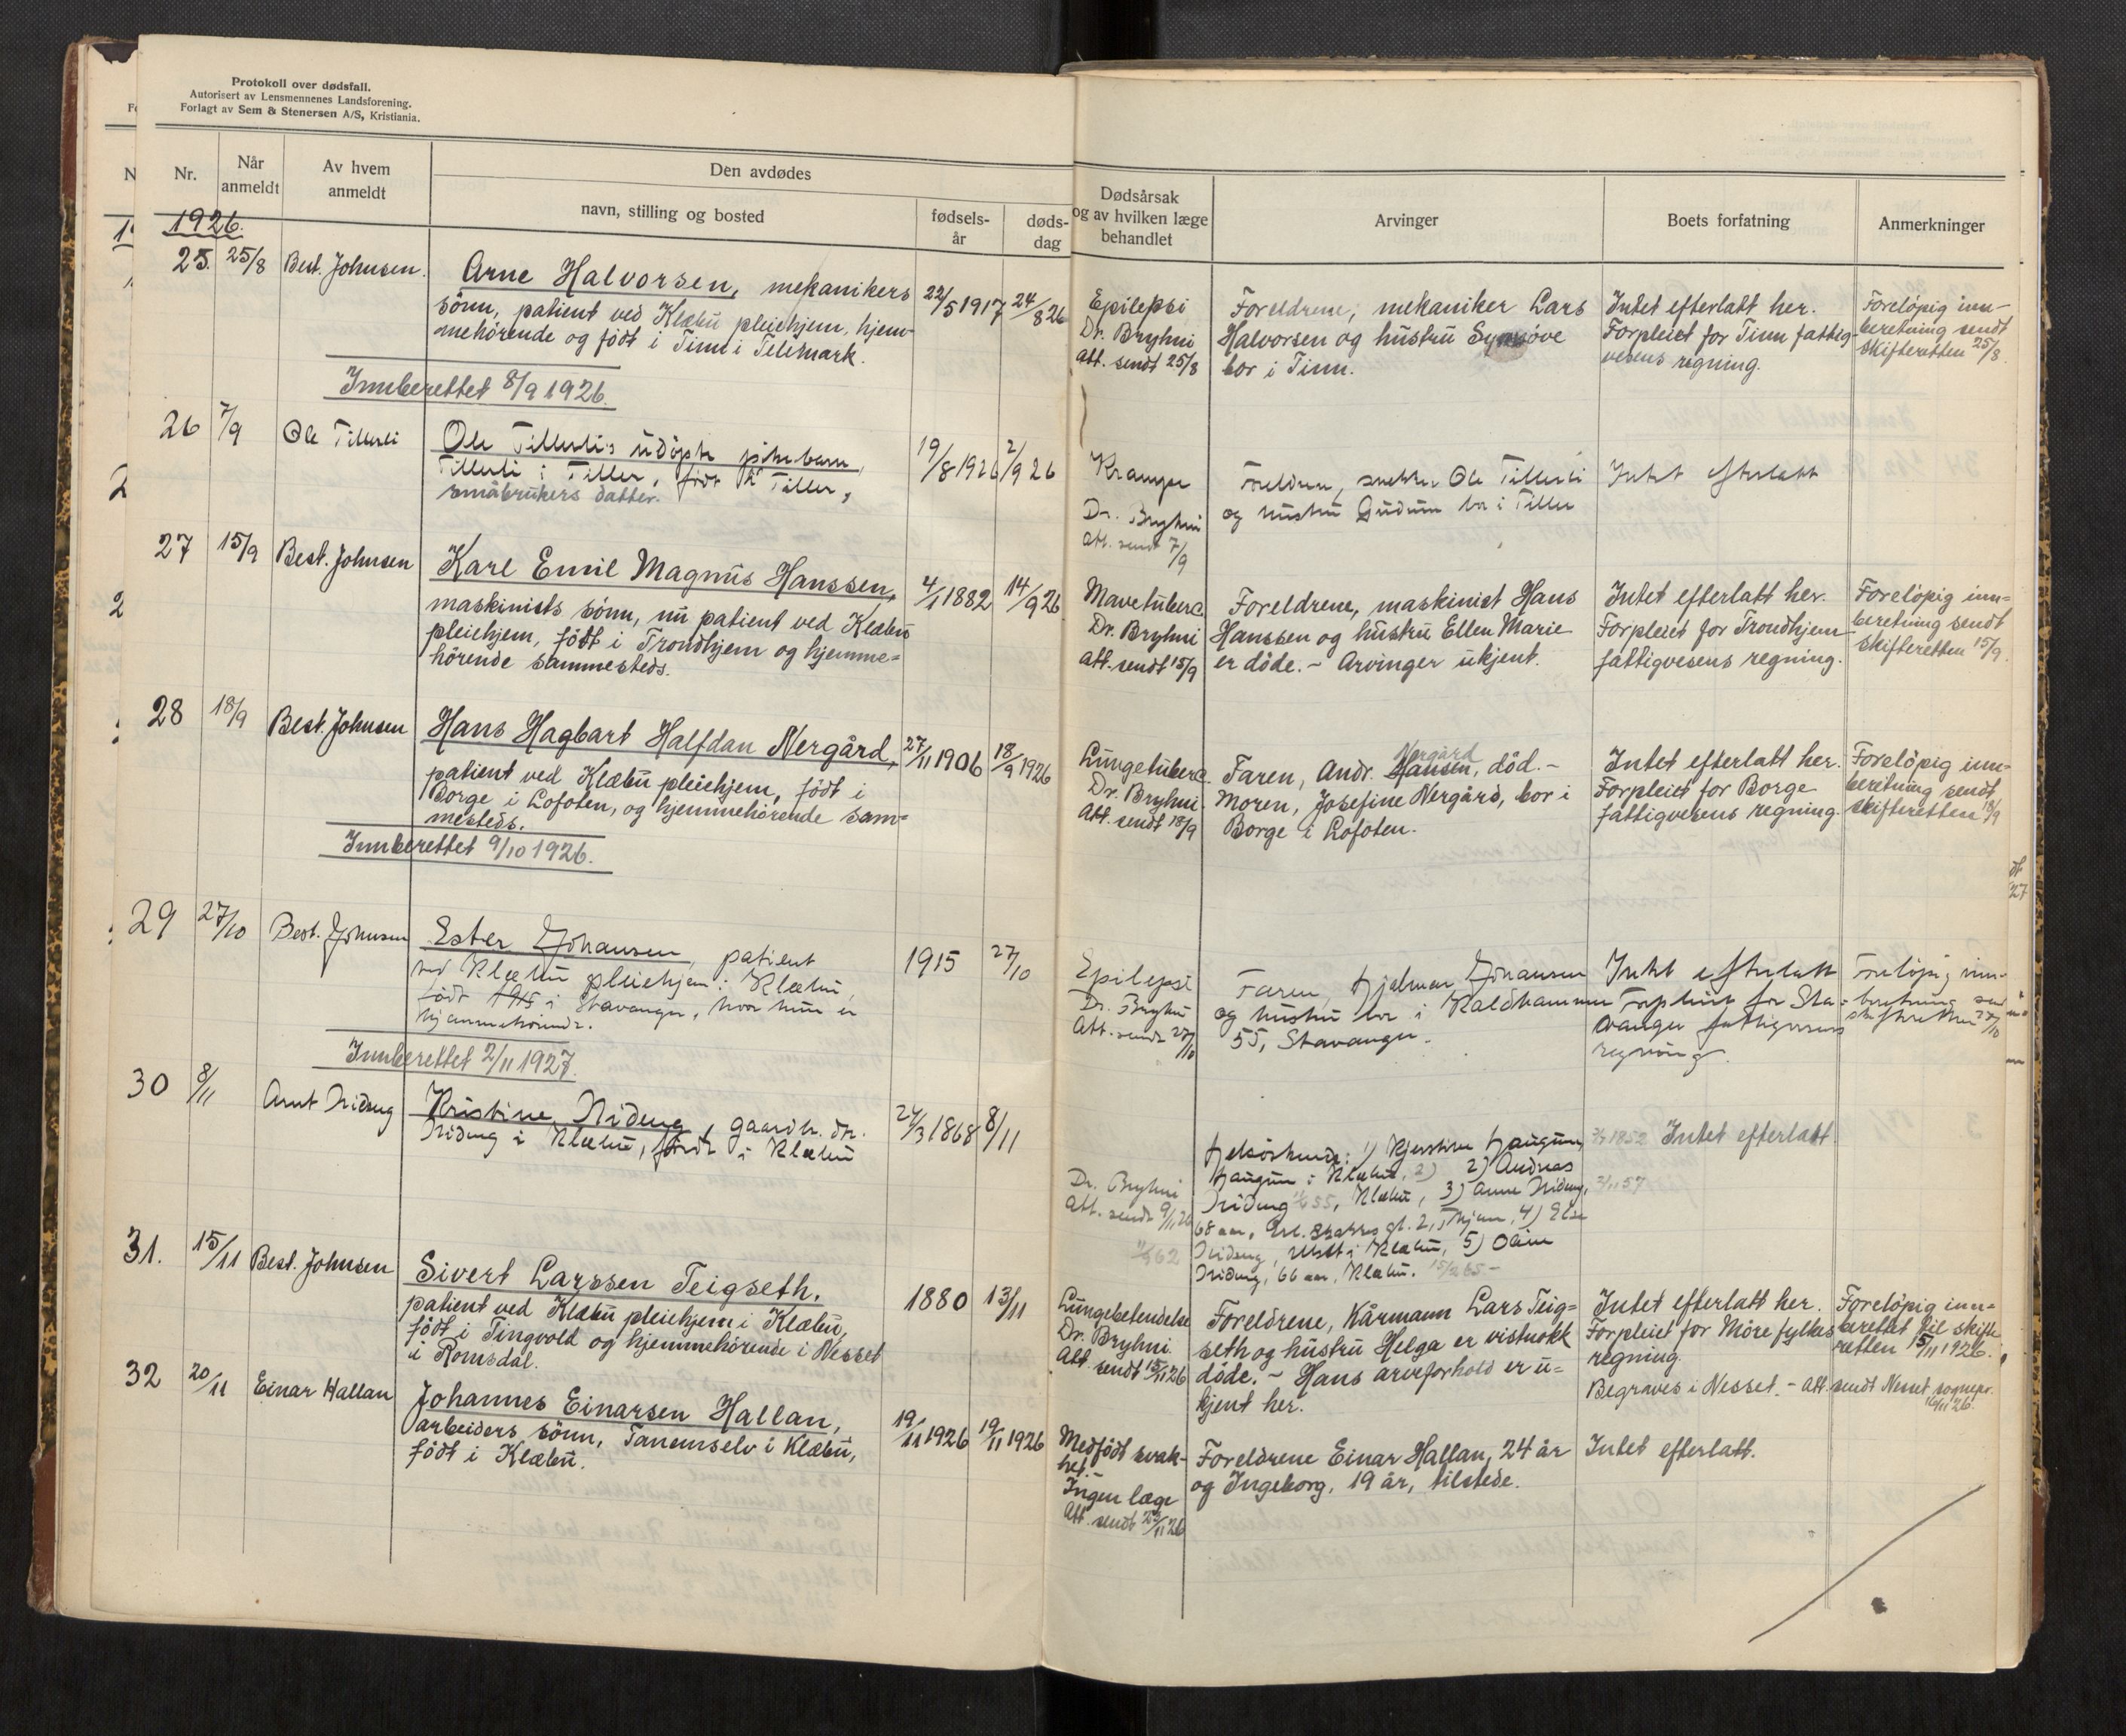 Protokoll over dødsfall.
Autorisert av Lensmennenes Landsforening.
Forlagt av Sem & Stenersen A/S, Kristiania.
Nr.
Når anmeldt
Av hvem anmeldt
Den avdødes
navn, stilling og bosted
fødsels-år
døds-dag
Dødsårsak og av hvilken læge behandlet
Arvinger
Boets forfatning
Anmerkninger
1926.
25. 25/8 Best. Johnsen.
Arne Halvorsen, mekanikers
sönn, patient ved Klæbu pleiehjem, hjem-
mehörende og födt i Tinn i Telemark.
22/5 1917 24/8 26
Epilepsi
Dr. Bryhni
Att. sendt 25/8
Foreldrene, mekaniker Lars
Halvorsen og hustru Synnöve
bor i Tinn.
Intet efterlatt her.
Forpleiet for Tinn fattig-
vesens regning.
Forelöpig inn-
beretning sendt
skifteretten 25/8.
Innberettet 8/9 1926.
26 7/9 Ole Tillerli
Ole Tillerli's udöpte pikebarn,
Tillerli i Tiller, född i Tiller,
småbrukers datter.
19/8 1926 2/9 26
Krampe
Dr. Bryhni
Att. sendt 7/9
Foreldrene, snekker Ole Tillerli
og hustru Gudrun bor i Tiller
Intet efterlatt
27 15/9 Best. Johnsen
Karl Emil Magnus Hanssen,
maskinists sönn, nu patient ved Klæbu
pleiehjem, födt i Trondhjem og hjemme=
hörende sammesteds.
4/1 1882 14/9 26
Mavetuberc.
Dr. Bryhni
Att. sendt 15/9
Foreldrene, maskinist Hans
Hanssen og hustru Ellen Marie
er döde. - Arvinger ukjent.
Intet efterlatt her.
Forpleiet for Trondhjem
fattigvesens regning.
Forelöpig inn=
beretning sendt
skifteretten 15/9.
28 18/9 Best. Johnsen
Hans Hagbart Halfdan Nergård,
patient ved Klæbu pleiehjem, födt i
Borge i Lofoten, og hjemmehörende sam=
mesteds.
27/11 1906 18/9 1926
Lungetuberc.
Dr. Bryhni
Att. sendt 18/9
Nergård
Faren, Andr. Hansen, död. -
Moren, Josefine Nergård, bor i
Borge i Lofoten.
Intet efterlatt her.
Forpleiet for Borge
fattigvesens regning.
Forelöpig inn=
beretning sendt
skifteretten 18/9
Innberettet 9/10 1926.
29 27/10 Best. Johnsen
Ester Johansen, patient
ved Klæbu pleiehjem i Klæbu,
födt 1915 i Stavanger, hvor hun er
hjemmehörende.
1915 27/10
Epilepsi
Dr. Bryhni
Att. sendt 27/10
Faren, Hjalmar Johansen
og hustru bor i Kaldhammer
55, Stavanger.
Intet efterlatt
Forpleiet for Sta=
vanger fattigvesens
regning.
Forelöpig inn-
beretning send
skifteretten 27/10
Innberettet 2/11 1927.
30 8/11 Arnt Nideng
Kristine Nideng, gaardbr. dtr.
Nideng i Klæbu, födt i Klæbu
24/3 1868 8/11
Dr. Bryhni
Att. sendt 9/11 26
Helsöskende: 1) Kjerstine Haugum,
Haugum i Klæbu, 2) 2) Andreas
Nideng 55, Klæbu, 3) Anne Nideng,
68 aar, gt. 2, Thjem, 4) Else
Nideng, Ulset i Klæbu, 5) Oline
Nideng, 66 aar, Klæbu. 15/2 65 -
1852
3/11 57
62
Intet efterlatt
31. 15/11 Best. Johnsen
Sivert Larssen Teigseth,
patient ved Klæbu pleiehjem i Klæbu,
födt i Tingvold og hjemmehörende i Nesset
i Romsdal.
1880 13/11
Lungebetendelse
Dr. Bryhni.
Att. sendt 15/11 26
Foreldrene, Kårmann Lars Teig=
seth og hustru Helga er vistnokk
döde. - Hans arveforhold er u=
kjent her.
Intet efterlatt her.
Forpleiet for Möre fylkes
regning.
Begraves i Nesset. - Att. sendt Nesset sognepr.
16/11 26.
Forelöpig inn=
berettet til skifte
retten 15/11 1926.
32 20/11 Einar Hallan
Johannes Einarsen Hallan,
arbeiders sönn, Tanemselv i Klæbu,
födt i Klæbu.
19/11 1926 19/11 1926
Medfödt svak-
het. -
Ingen læge
Att. sendt 23/11 26
Foreldrene Einar Hallan, 24 år
og Ingeborg, 19 år, tilstede.
Intet efterlatt.